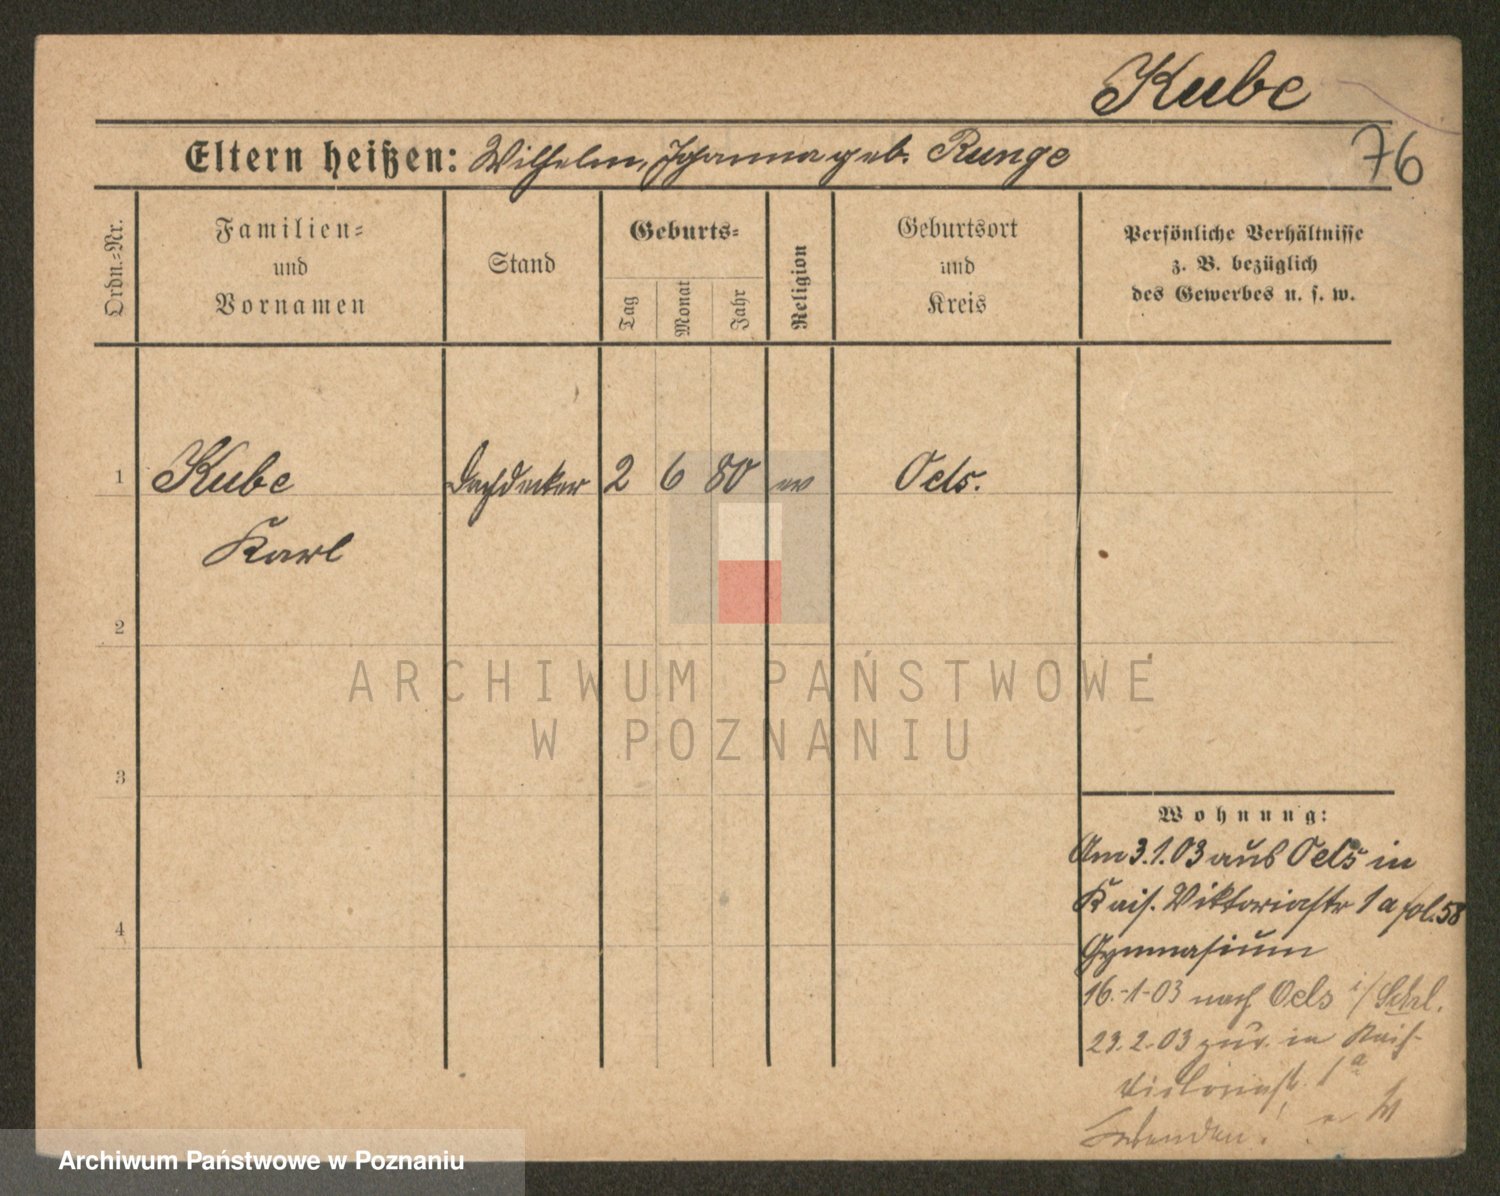 Kube
76
Eltern heißen: Wilhelm, Johanna geb. Runge
Ordn.-Nr.
Familien-
und
Vornamen
Stand
Geburts-
Tag
Monat
Jahr
Religion
Geburtsort
und
Kreis
Persönliche Verhältnisse
z. B. bezüglich
des Gewerbes u. s. w.
1 Kube Dachdecker 2 6 80 ev Oels.
Karl
2
ARCHIWUM PAŃSTWOWE
W POZNANIU
3
Wohnung:
Am 3.1.03 aus Oels in
Kais. Viktoriastr 1a fol. 58
4
Gymnasium
16.-1-03 nach Oels i/Schl.
23.2.03 zur. in Kais-
Viktoriastr. 1a
Wenden!
Archiwum Państwowe w Poznaniu